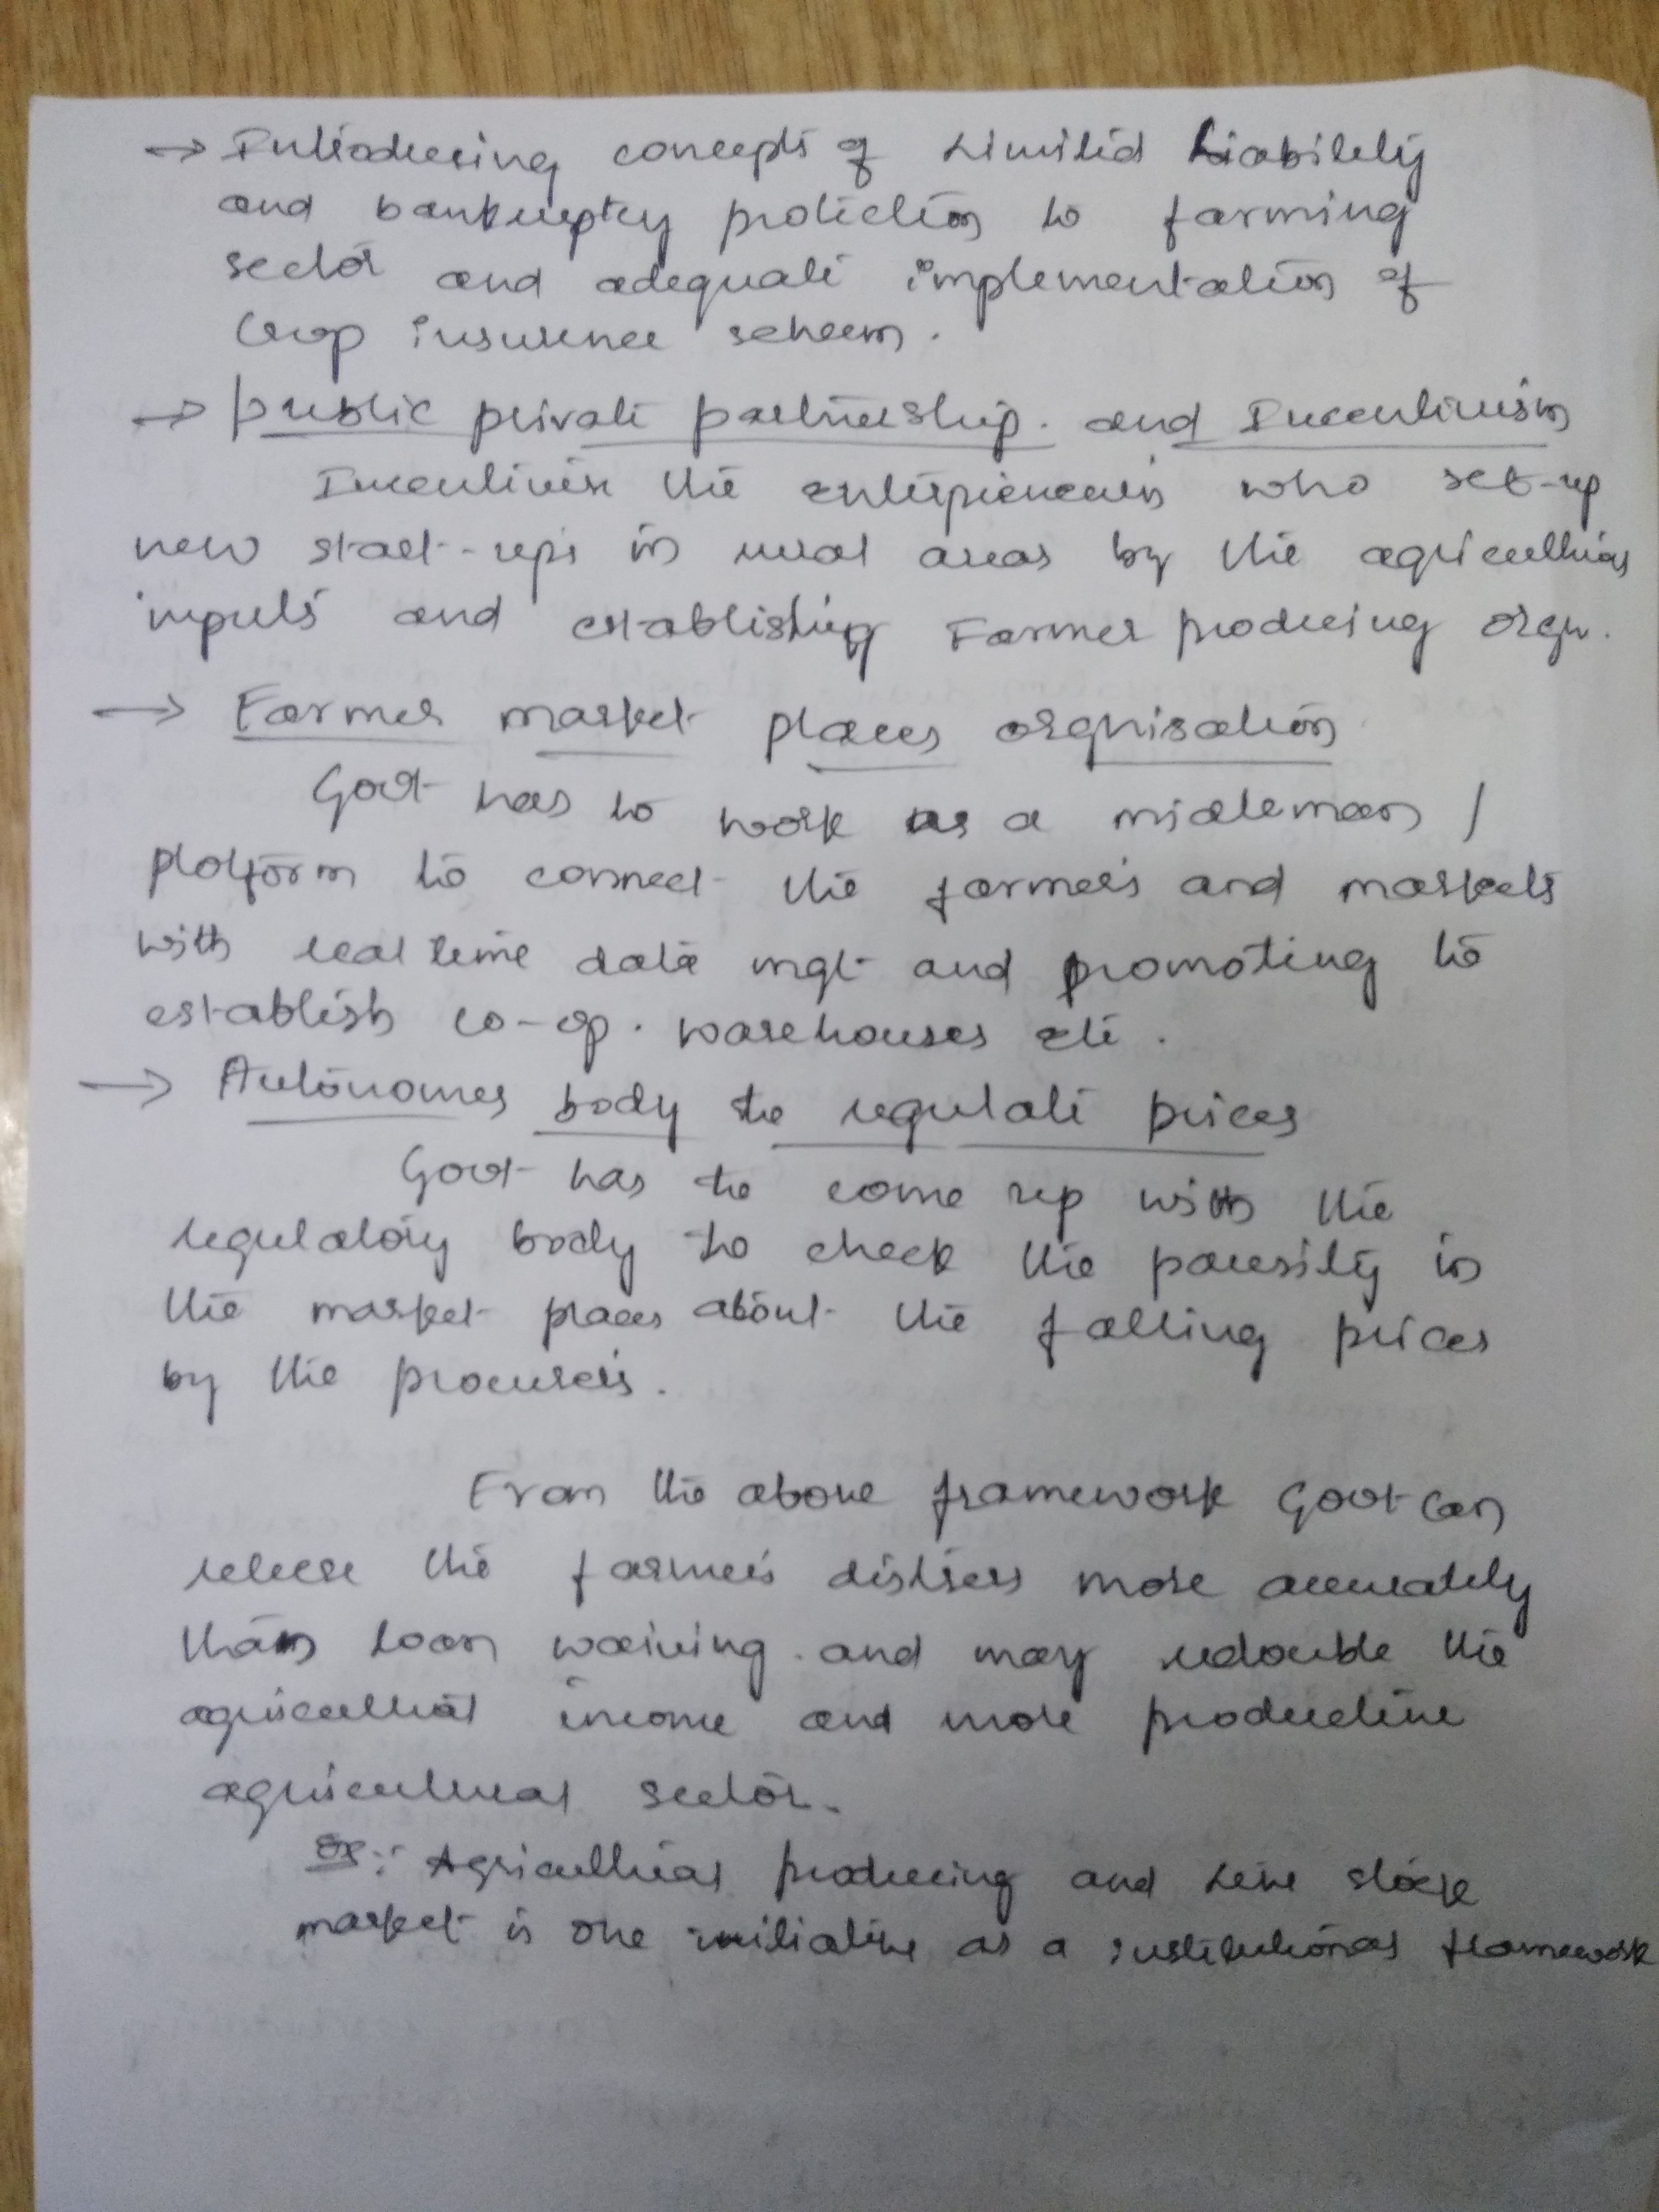 → Introducing concepts of Limited Liability
and bankruptcy protection to farming
sector and adequate implementation of
Crop insurance scheem.
→ public private partnership. and Incentivism
Incentivise the enterpreneurs who set-up
new start-ups in rural areas by the agricultural
inputs and establishing Farmer producing orgn.
→ Farmer market places orgnisation
Govt has to work as a midleman /
platform to connect the farmers and markets
with real time data mgt and promoting to
establish co-op. warehouses etc.
→ Autonomes body to regulate prices
Govt has to come up with the
regulatory body to check the
the market places about the falling prices
by the procurers.
From the above framework Govt can
the farmers distress more accurately
than loan waiving. and may redouble the
agricultural income and more productive
agricultural sector.
Ex:- Agricultural producing and Live stock
market is one initiative as a institutional framework